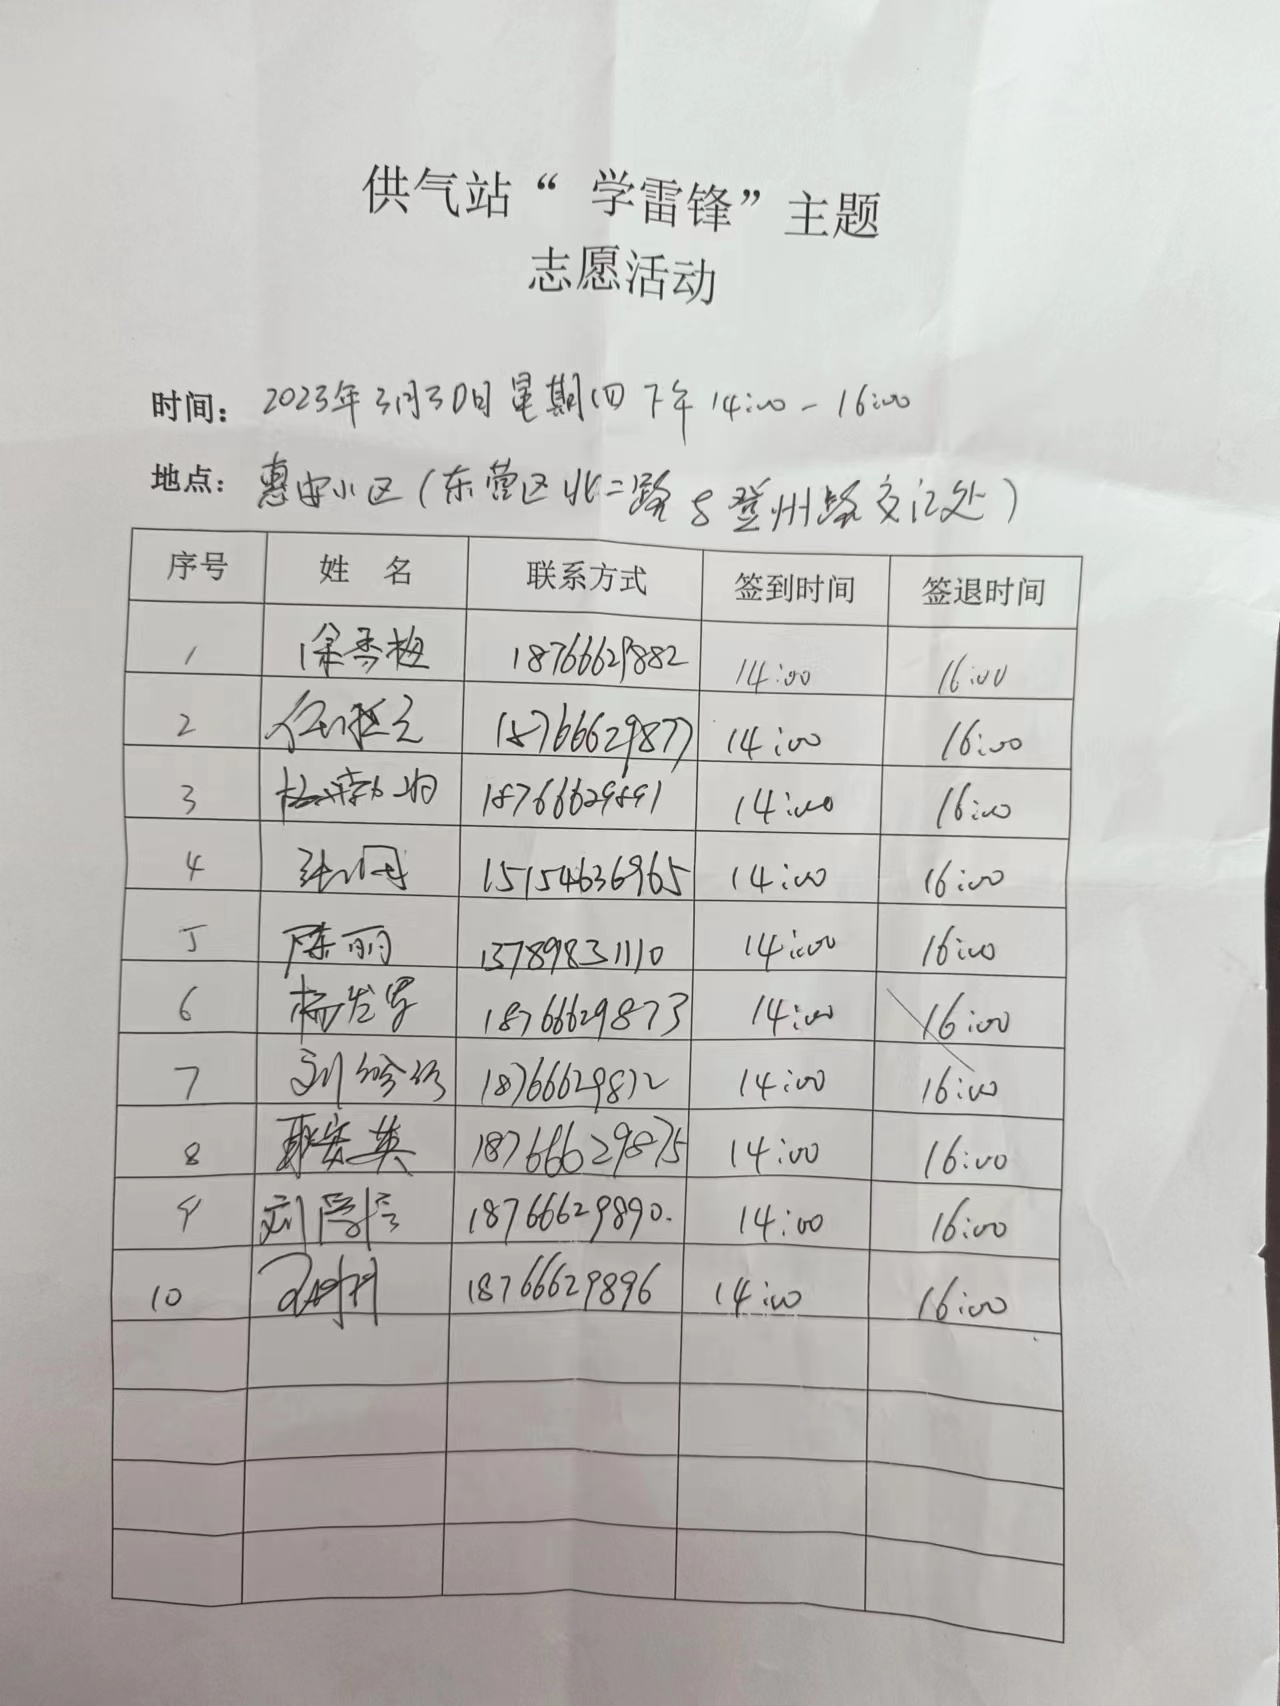 供气站“ 学雷锋”主题
志愿活动
时间： 2023年3月30日星期四下午14:00-16:00
地点： 惠安小区(东营区北二路与登州路交汇处)
序号 姓 名 联系方式 签到时间 签退时间
1 徐秀梅 18766629882 14:00 16:00
2 18766629877 14:00 16:00
3 18766629891 14:00 16:00
4 15154636965 14:00 16:00
5 陈丽 13789831110 14:00 16:00
6 杨发军 18766629873 14:00 16:00
7 刘 18766629872 14:00 16:00
8 18766629875 14:00 16:00
9 刘学信 18766629890. 14:00 16:00
10 18766629896 14:00 16:00